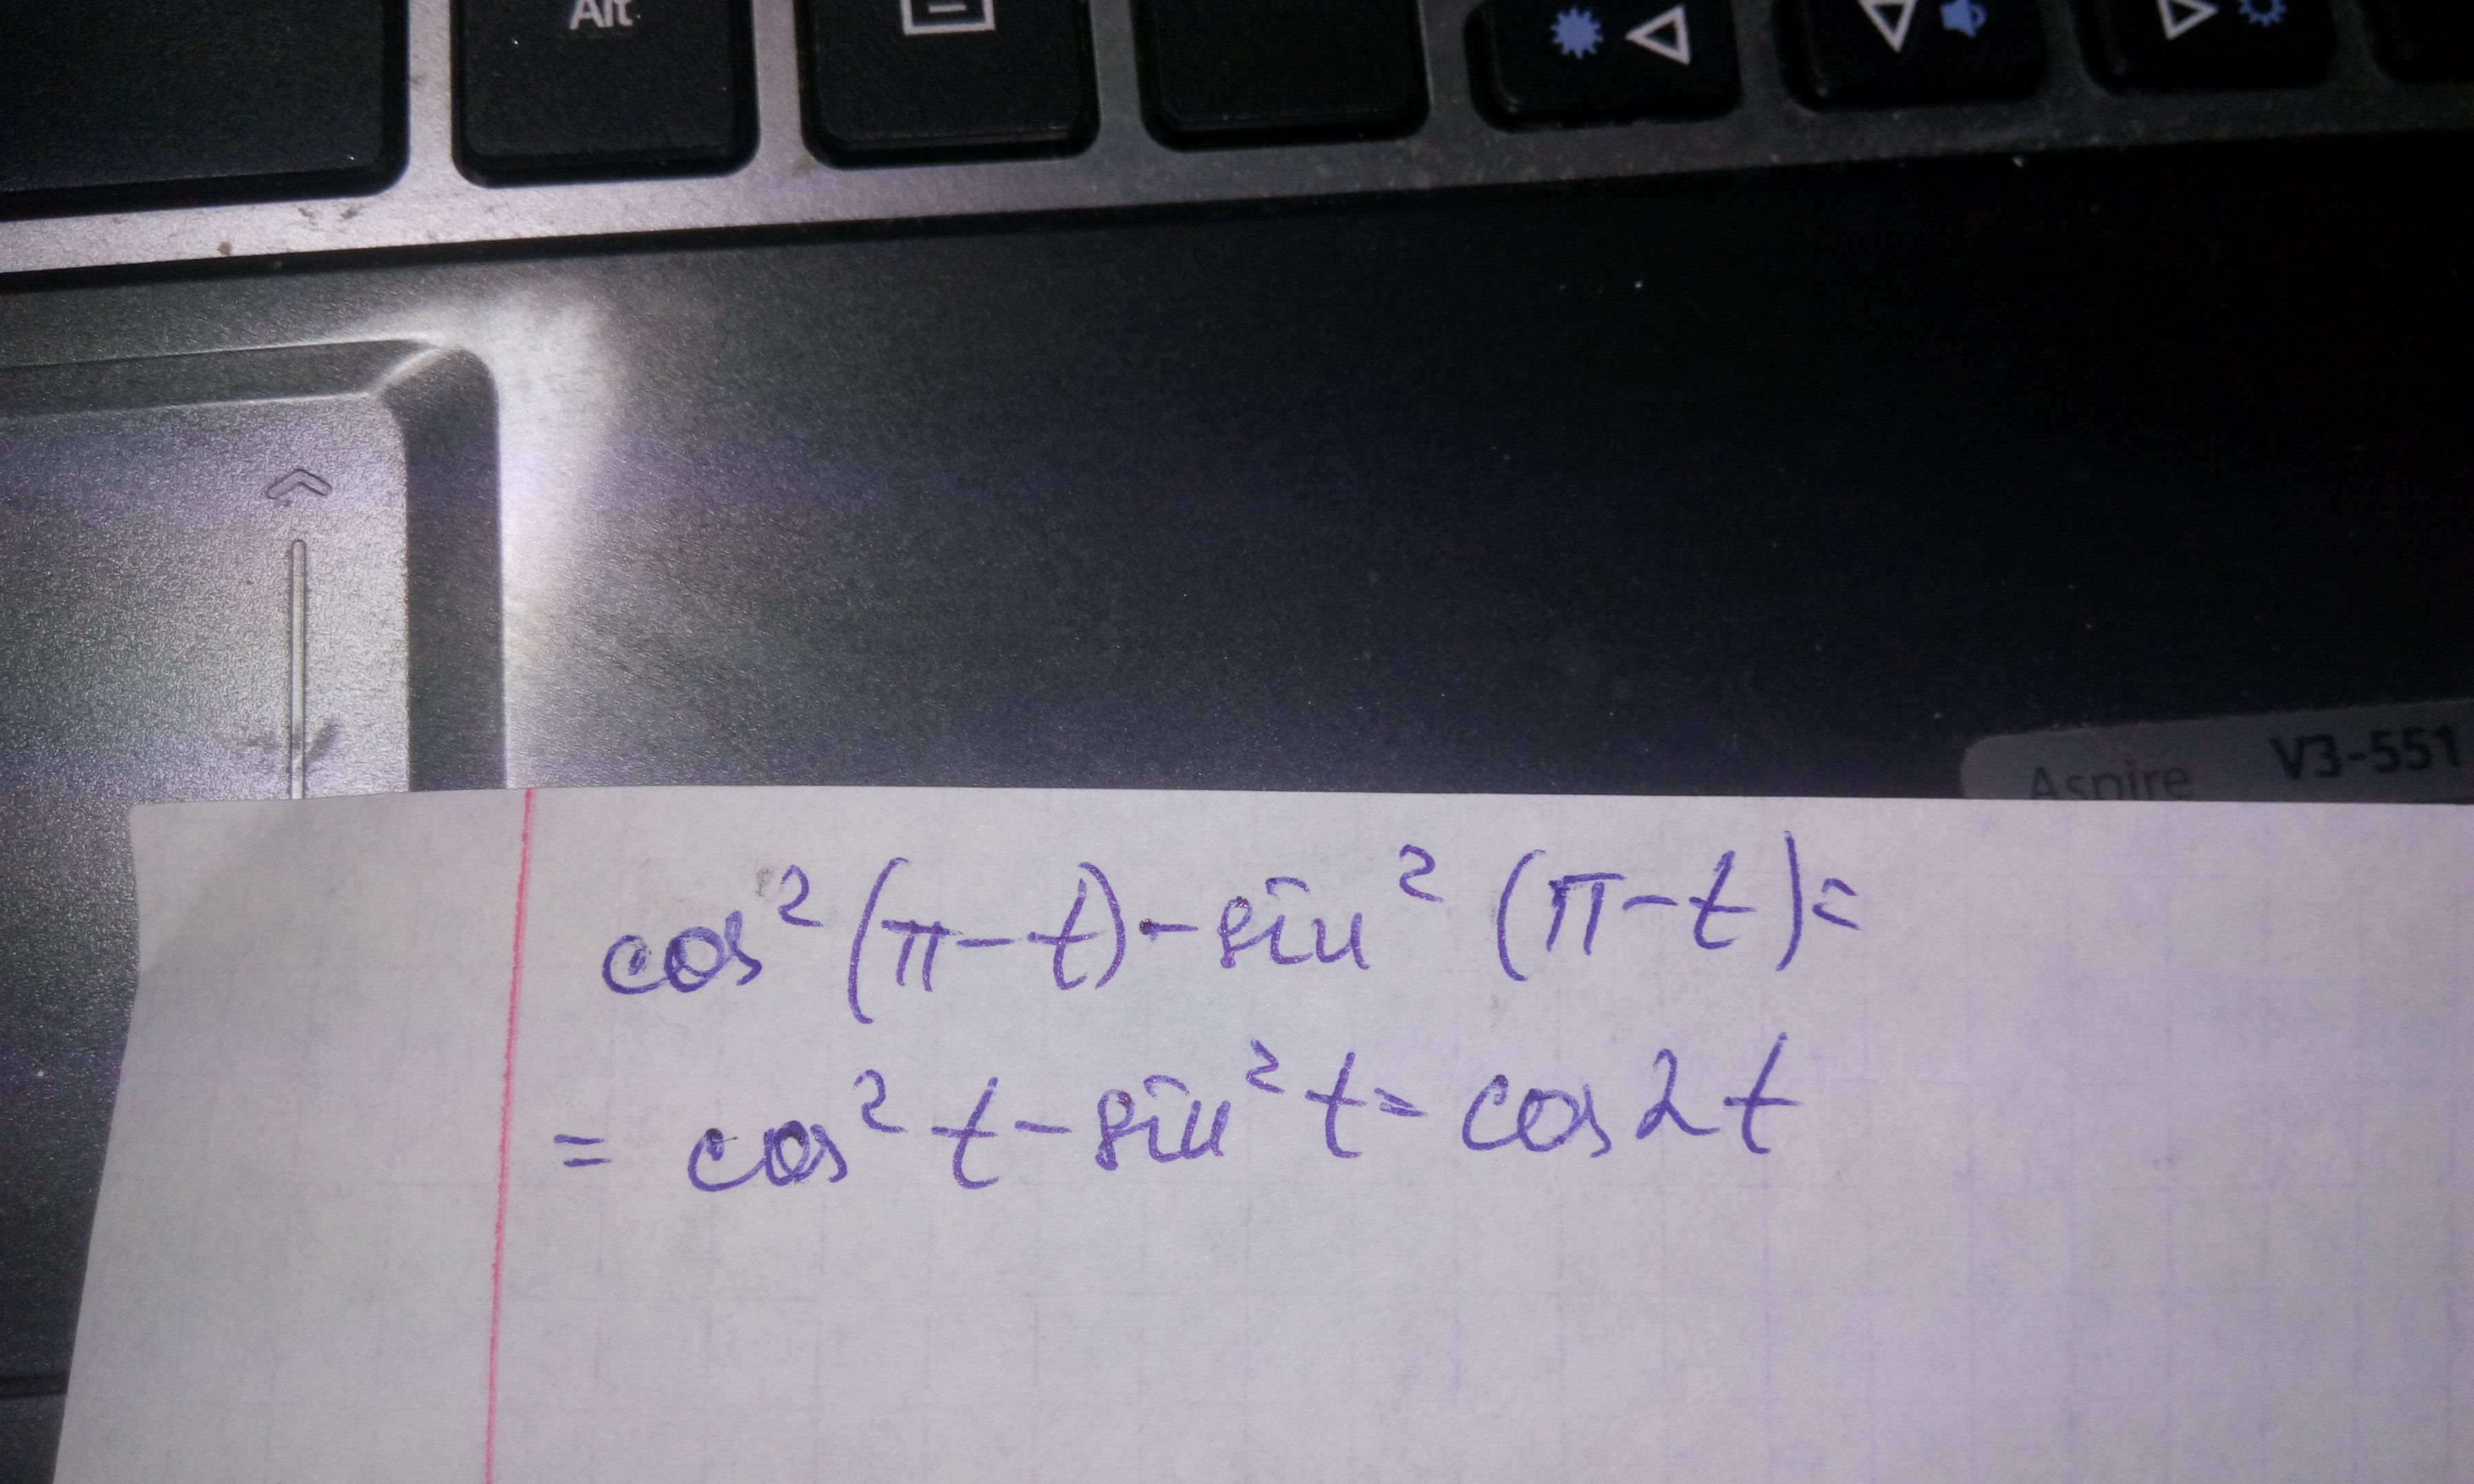 Alt
Aspire V3-551
cos²(π-t)-sin²(π-t)=
= cos²t-sin²t= cos2t